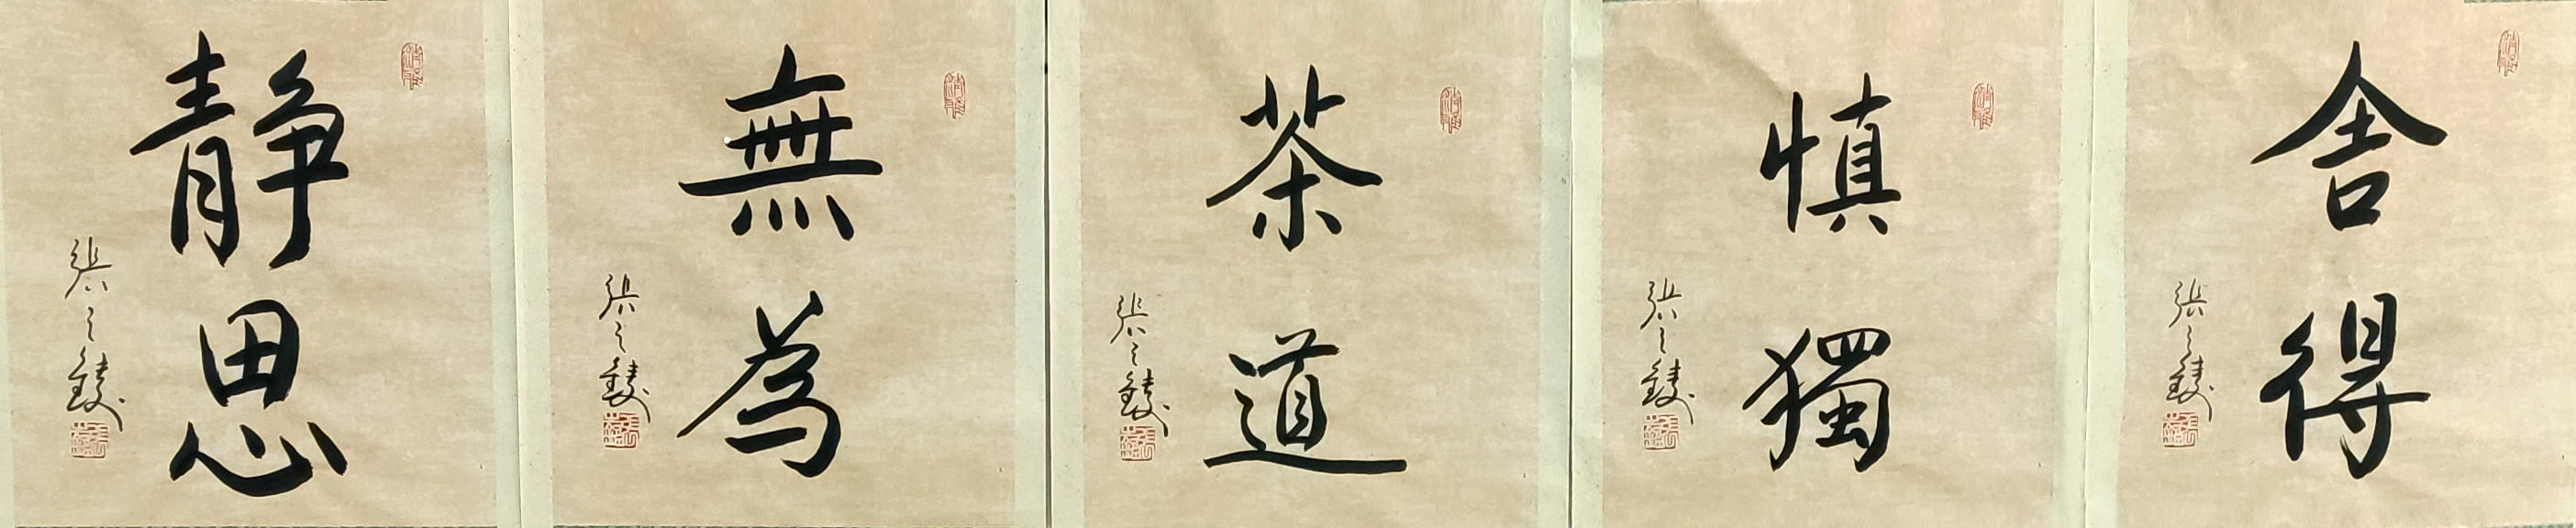 静思
張之鐽
無為
張之鐽
茶道
張之鐽
慎獨
張之鐽
舍得
張之鐽